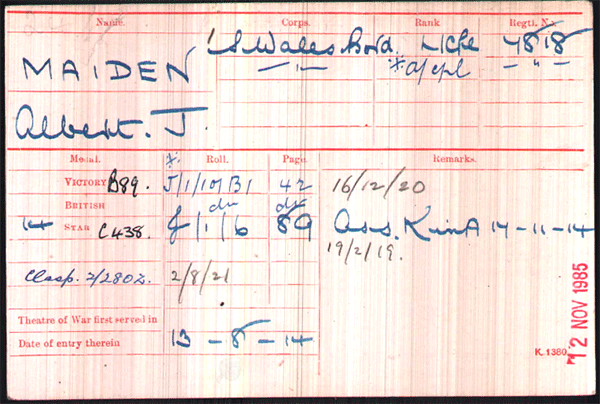 Name. Corps. Rank Regtl. No.
MAIDEN 1/S Wales Bord. L/Cpl 4818
— " — * A/Cpl — " —
Albert. J.
Medal. * Roll. Page. Remarks.
VICTORY B89. J/1/101B1 42 16/12/20
BRITISH do do
14 STAR C438. J/1/6 89 Ass. KinA 14-11-14
19/2/19.
Clasp. 2/2802. 2/8/21
Theatre of War first served in
Date of entry therein 13-8-14
K. 1380
12 NOV 1985